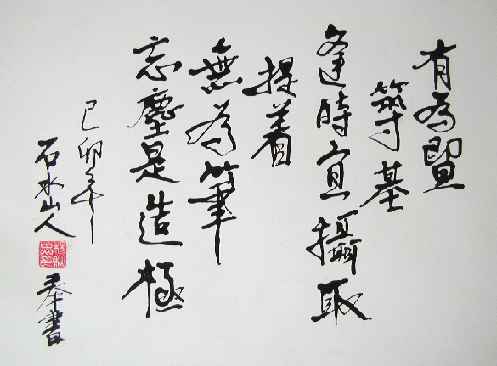 有為暨
築基
逢時宜攝取
提着
無為筆
忘塵是造極
己卯年
石水山人
書